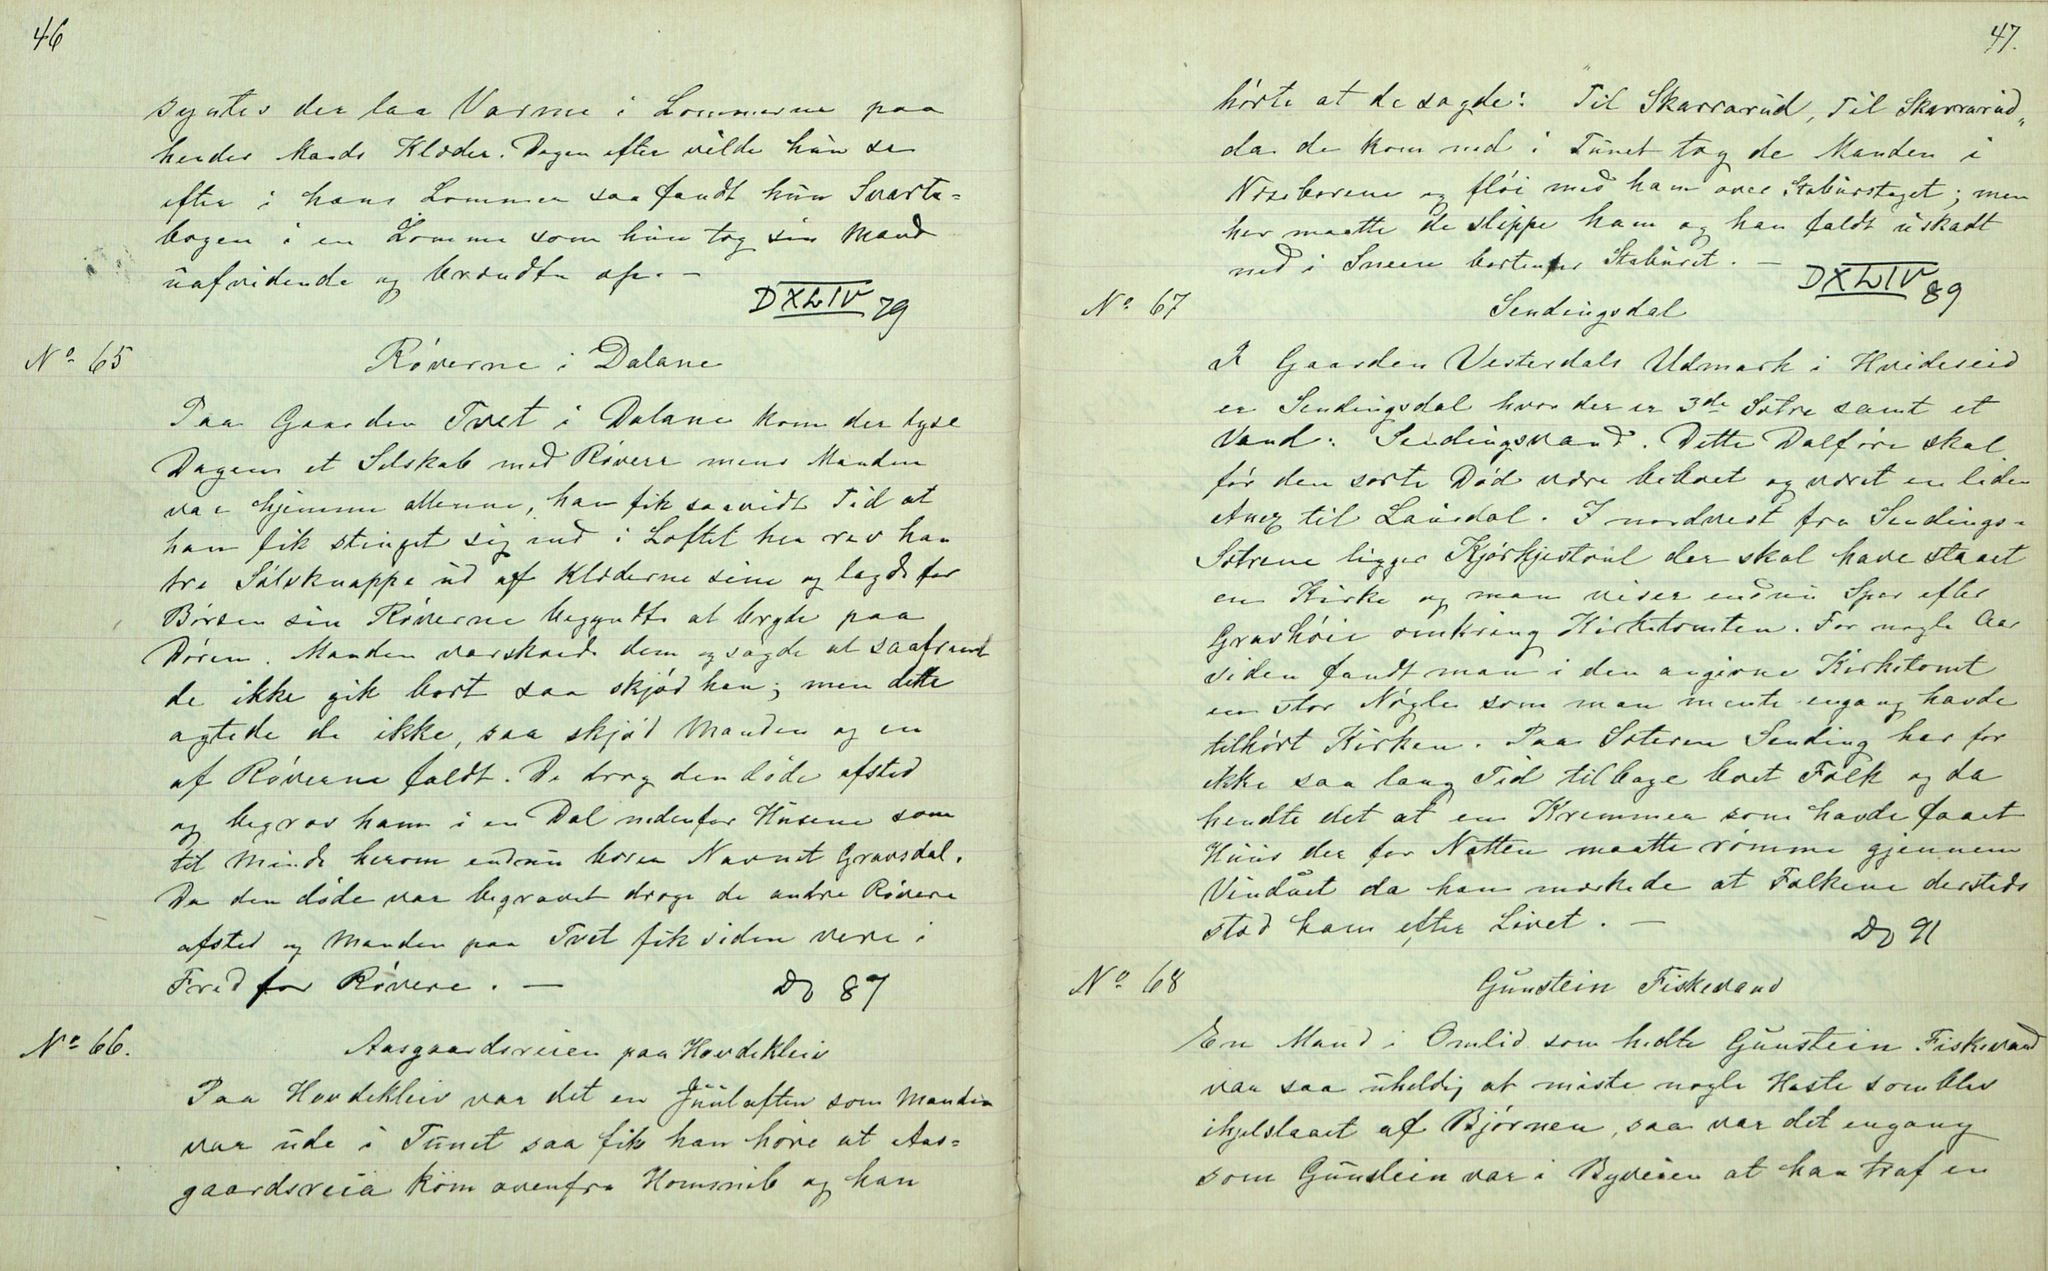 46
syntes der laa Varme i Lommerne paa
hendes Mands Klæder. Dagen efter vilde hun se
efter i hans Lommer saa fandt hun Svarte-
bogen i en Lomme som hun tog sin Mand
uafvidende og brændte op. —
DXLIV 79
No 65 Røverne i Dalane
Paa Gaarden Tvet i Dalane kom der lyse
Dagen et Selskab med Røvere mens Manden
var hjemme allene, han fik saavidt Tid at
han fik stengt sig ind i Loftet her rev han
tre Sølvknappe ud af Klæderne sine og lagde for
Børsen sin Røverne begyndte at bryde paa
Døren. Manden varskoede dem og sagde at saafremt
de ikke gik bort saa skjød han; men dette
agtede de ikke, saa skjød Manden og en
af Røverne faldt. De drog den døde afsted
og begrov ham i en Dal nedenfor Husene som
til Minde herom endnu bærer Navnet Gravsdal.
Da den døde var begravet droge de andre Røvere
afsted og Manden paa Tvet fik siden være i
Fred for Røvere. — Do 87
No 66. Aasgaardsreien paa Hovdekleiv
Paa Hovdekleiv var det en Juulaften som Manden
var ude i Tunet saa fik han høre at Aas-
gaardsreia kom ovenfra Hommib og han
47.
hørte at de sagde: Til Skarrarud, Til Skarrarud„
da de kom ned i Tunet tog de Manden i
Næseborene og fløi med ham over Staburstaget; men
her maatte de slippe ham og han faldt uskadt
ned i Sneen bortenfor Staburet. —
DXLIV 89
No 67 Sendingsdal
I Gaarden Vesterdals Udmark i Hvideseid
er Sendingsdal hvor der er 3de Sætre samt et
Vand: Sendingsvand. Dette Dalføre skal
før den sorte Død være beboet og været en liden
Anex til Laurdal. I nordvest fra Sendings-
Sætrene ligger Kjørkjestøul der skal have staaet
en Kirke og man viser endnu Spor efter
Gravhøie omkring Kirketomten. For nogle Aar
siden fandt man i den angivne Kirketomt
en stor Nøgle som man mente engang havde
tilhørt Kirken. Paa Sæteren Sending har for
ikke saa lang Tid tilbage boet Folk og da
hendte det at en Kremmer som havde faaet
Huus der for Natten maatte rømme gjennem
Vinduet da han mærkede at Folkene dersteds
stod ham efter Livet. — Do 91
No 68 Gunstein Fiskevand
En Mand i Omlid som hedte Gunstein Fiskevand
var saa uheldig at miste nogle Heste som blev
ihjelslaaet af Bjørnen, saa var det engang
som Gunstein var i Byveien at han traf en